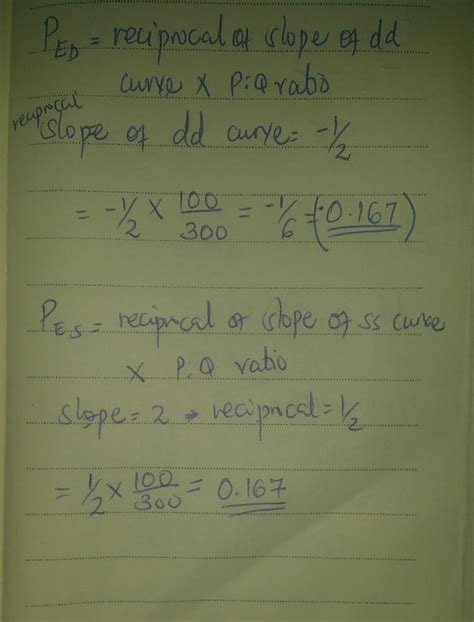 PED = reciprocal of slope of dd
curve x P:Q ratio
reciprocal
slope of dd curve = -1/2
= -1/2 x 100/300 = -1/6 = (-0.167)
PES = reciprocal of slope of ss curve
x P:Q ratio
slope = 2 → reciprocal = 1/2
= 1/2 x 100/300 = 0.167